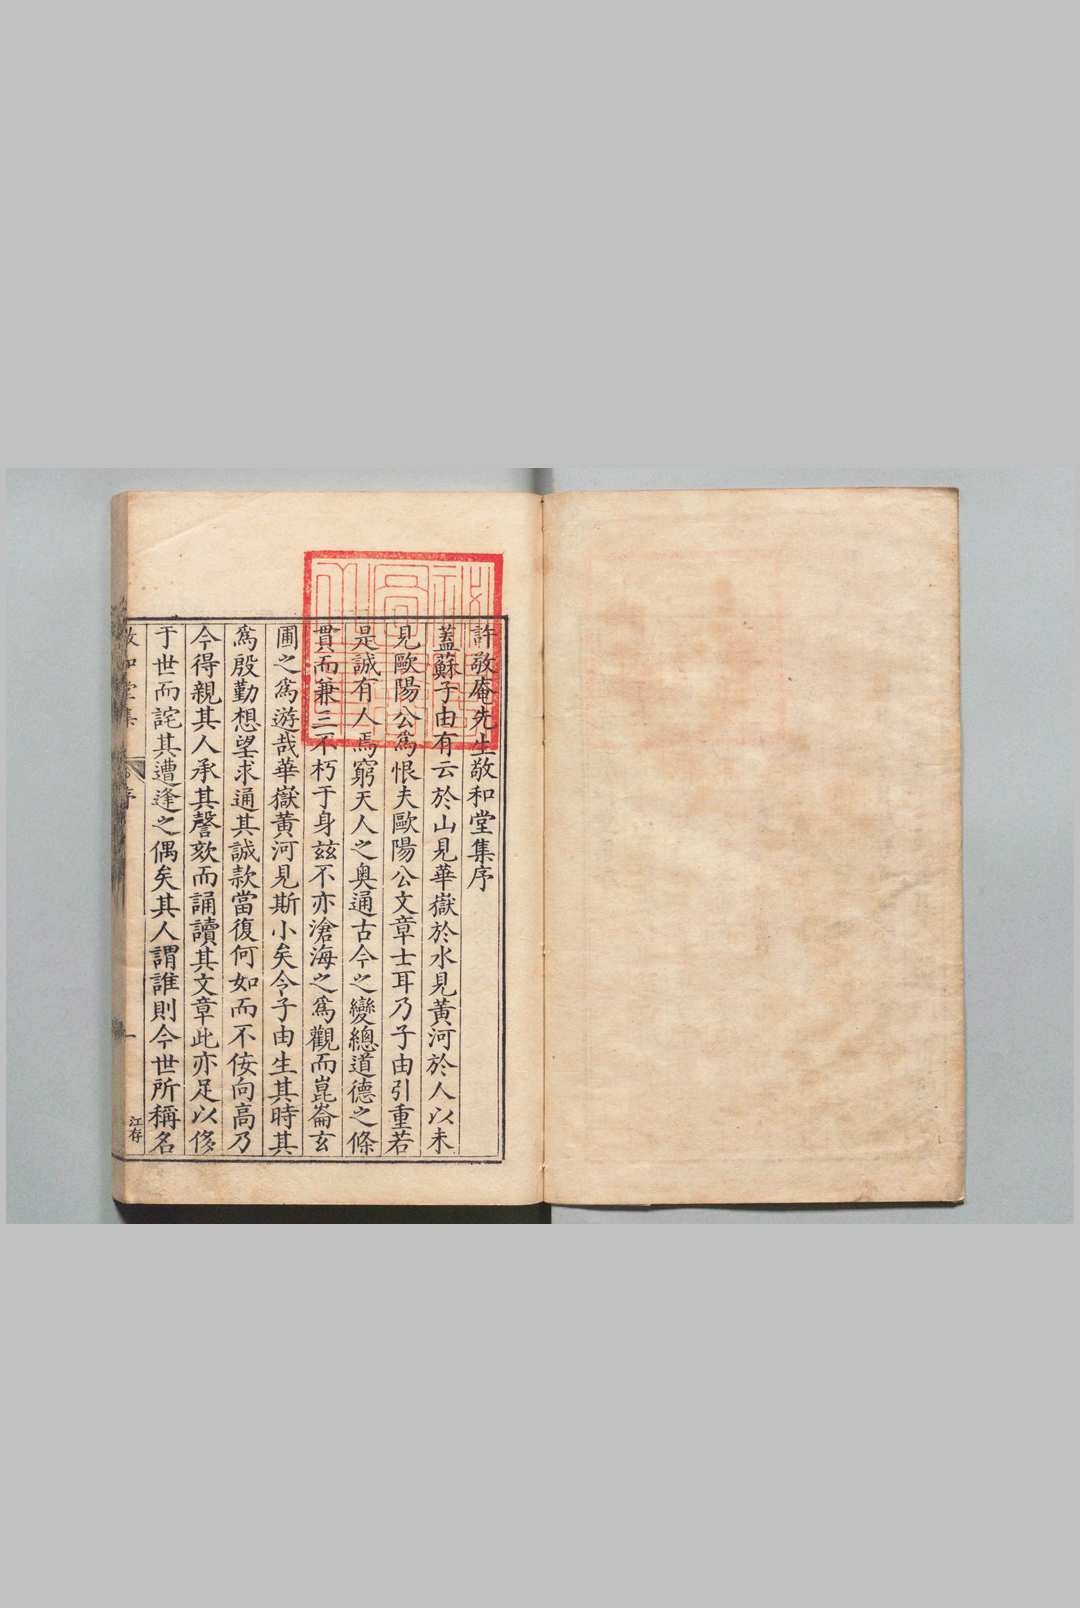 許敬庵先生敬和堂集序
蓋蘇子由有云於山見華嶽於水見黃河於人以未
見歐陽公爲恨夫歐陽公文章士耳乃子由引重若
是誠有人焉窮天人之奧通古今之變總道德之條
貫而兼三不朽于身玆不亦滄海之爲觀而崑崙玄
圃之爲游哉華嶽黃河見斯小矣令子由生其時其
爲殷勤想望求通其誠款當復何如而不佞向高乃
今得親其人承其謦欬而誦讀其文章此亦足以侈
于世而詫其遭逢之偶矣其人謂誰則今世所稱名
敬和堂集
序
一
江存